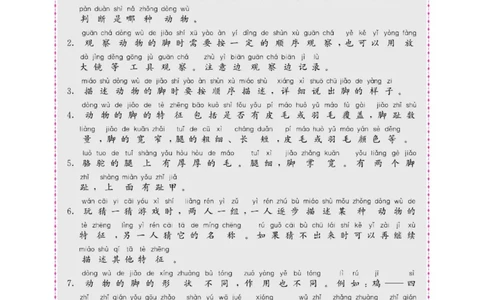 pàn duàn shì nǎ zhǒng dòng wù
判断是哪种动物。
guān chá dòng wù de jiǎo shí xū yào àn yí dìng de shùn xù guān chá yě kě yǐ yòng fàng
2. 观察动物的脚时需要按一定的顺序观察,也可以用放
dà jìng děng gōng jù guān chá zhù yì biān guān chá biān jì lù
大镜等工具观察。注意边观察边记录。
miáo shù dòng wù de jiǎo shí yào àn shùn xù miáo shù xiáng xì shuō chū jiǎo de yàng zi
3. 描述动物的脚时要按顺序描述,详细说出脚的样子。
dòng wù de jiǎo de tè zhēng bāo kuò shì fǒu yǒu pí máo huò yǔ máo fù gài jiǎo zhǐ shù
4. 动物的脚的特征包括是否有皮毛或羽毛覆盖,脚趾数
liàng jiǎo de kuān zhǎi tuǐ de cū xì cháng duǎn pí máo huò yǔ máo yán sè děng
量,脚的宽窄,腿的粗细、长短,皮毛或羽毛颜色等。
luò tuo de tuǐ shàng yǒu hòu hòu de máo tuǐ xì jiǎo zhǎng kuān yǒu liǎng gè jiǎo
5. 骆驼的腿上有厚厚的毛。腿细,脚掌宽。有两个脚
zhǐ shàng miàn yǒu zhǐ jiǎ
趾,上面有趾甲。
wán cāi yì cāi yóu xì shí liǎng rén yì zǔ yì rén zhú bù miáo shù mǒu zhǒng dòng wù de
6. 玩猜一猜游戏时,两人一组,一人逐步描述某种动物的
tè zhēng lìng yì rén cāi tā de míng chēng rú guǒ cāi bù chū lái shí kě yǐ zài jì xù
特征,另一人猜它的名称。如果猜不出来时可以再继续
miáo shù qí tā tè zhēng
描述其他特征。
dòng wù de jiǎo de xíng zhuàng bù tóng zuò yòng yě bù tóng lì rú jī sì
7. 动物的脚的形状不同,作用也不同。例如:鸡——四